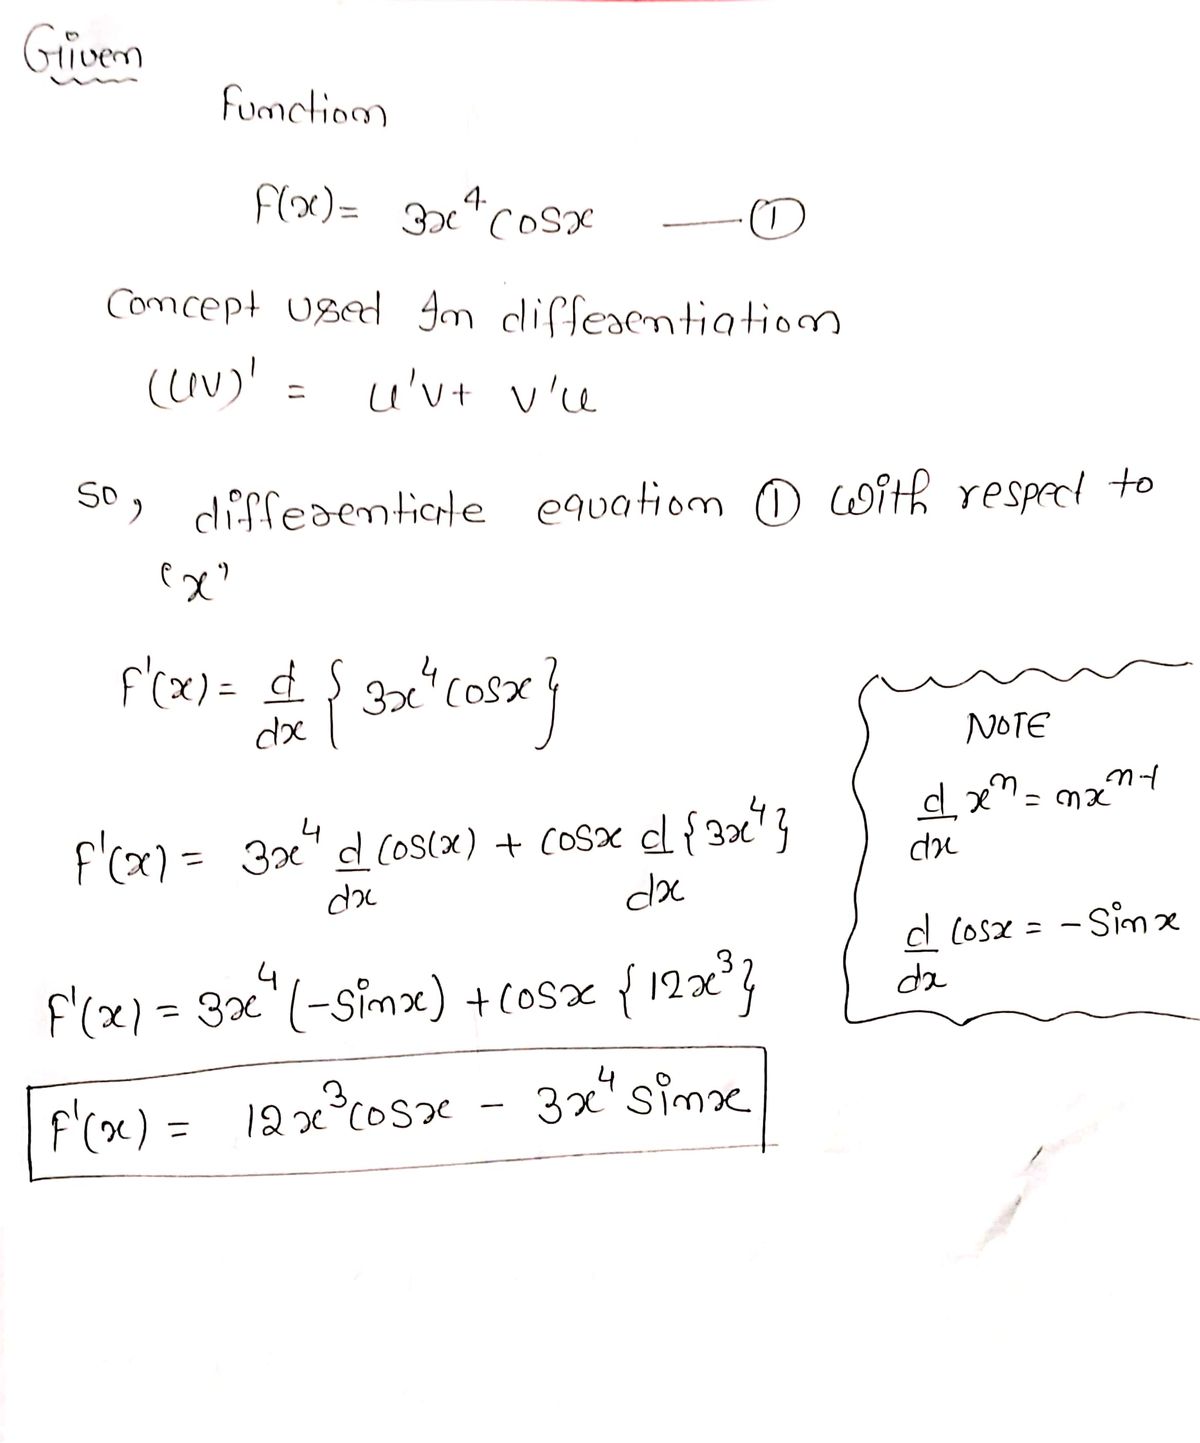 Given
Function
F(x) = 3x⁴ cosx —①
Concept used In differentiation
(uv)' = u'v + v'u
so, differentiate equation ① with respect to
'x'
F'(x) = d/dx { 3x⁴ cosx }
F'(x) = 3x⁴ d/dx cos(x) + cosx d/dx {3x⁴}
F'(x) = 3x⁴ (-sinx) + cosx {12x³}
F'(x) = 12x³ cosx - 3x⁴ sinx
NOTE
d/dx xⁿ = nxⁿ⁻¹
d/dx cosx = -sinx